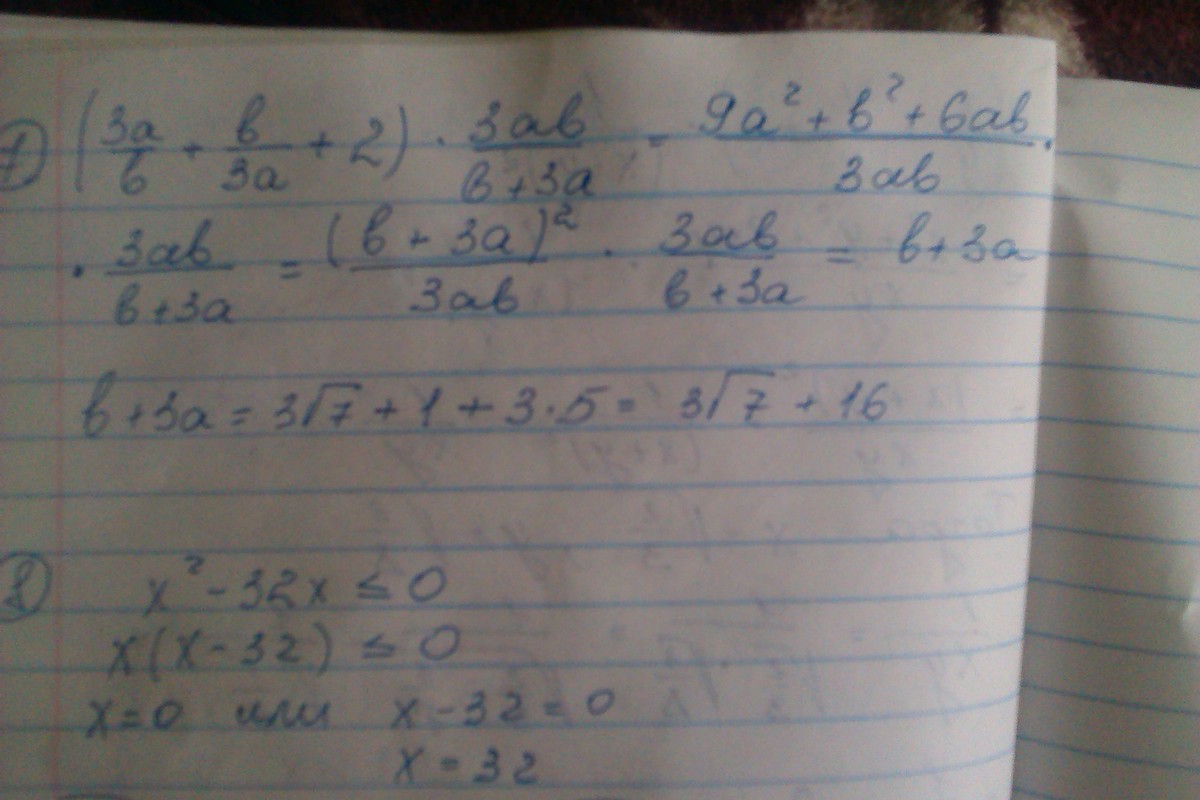 1) (3a/в + в/3a + 2) · 3aв/(в+3a) = (9a² + в² + 6aв)/3aв ·
· 3aв/(в+3a) = (в + 3a)²/3aв · 3aв/(в+3a) = в+3a
в+3a = 3√7 + 1 + 3·5 = 3√7 + 16
x² - 32x ≤ 0
x(x - 32) ≤ 0
x=0 или x - 32 = 0
x = 32